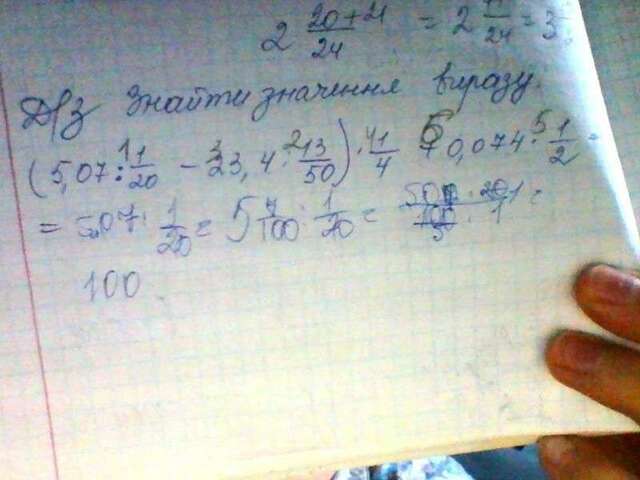 2 20+21/24 = 2 /24 = 3
Д/З Знайти значення виразу.
(5,07 : 1/20 - 23,4 : 2 13/50) · 4 1/4 + 0,074 · 5 1/2 =
= 5,07 : 1/20 = 5 7/100 : 1/20 = 507 · 20/100 · 1 =
100